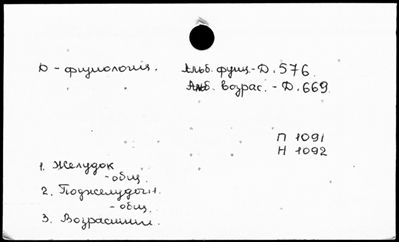 D - физиологія. Альб. функц. - D. 576.
Альб. Возрас. - D. 669.
П 1091
Н 1092
1. Желудок
- общ.
2. Поджелудочн.
- общ.
3. Возрастным.